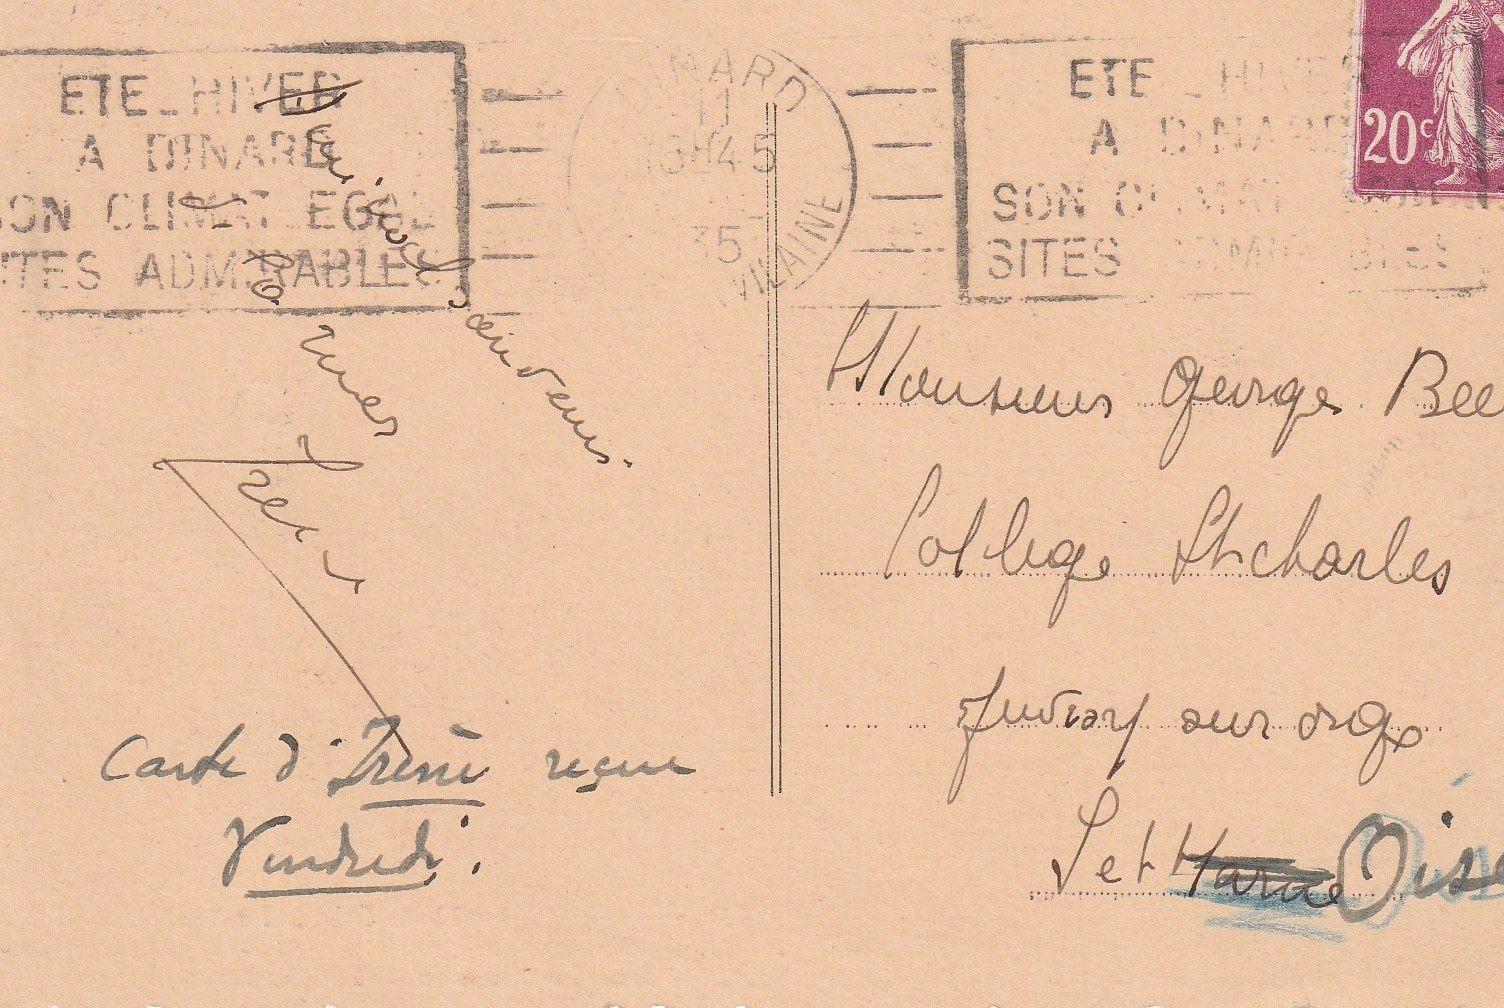 ETE_HIVER
A DINARD
SON CLIMAT EGAL
SITES ADMIRABLES
DINARD
11
18H45
35
VILAINE
ETE_HIVER
A DINARD
SON CLIMAT EGAL
SITES ADMIRABLES
20c
Monsieur George
College St charles
Juvisy sur orge
S et Marne Oise
Carte d'Irène reçue
Vendredi.